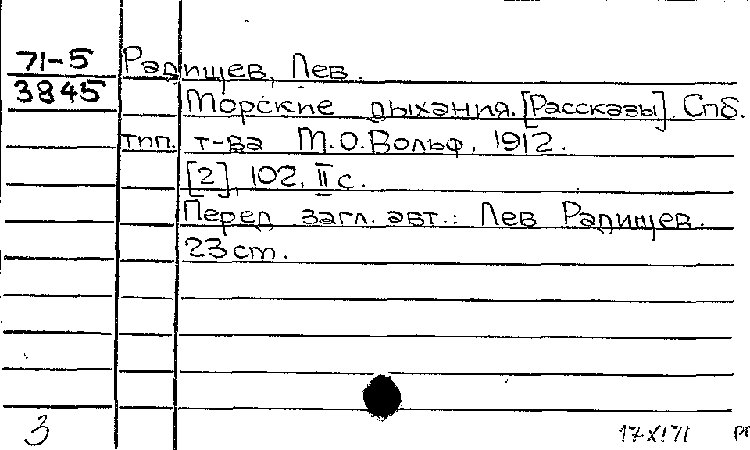 71-5 Радищев, Лев.
3845 Морские дыхания. [Рассказы]. Спб.
тип. т-ва М.О.Вольф, 1912.
[2], 102, II с.
Перед загл. авт.: Лев Радищев.
23 cm.
3
17 XI 71